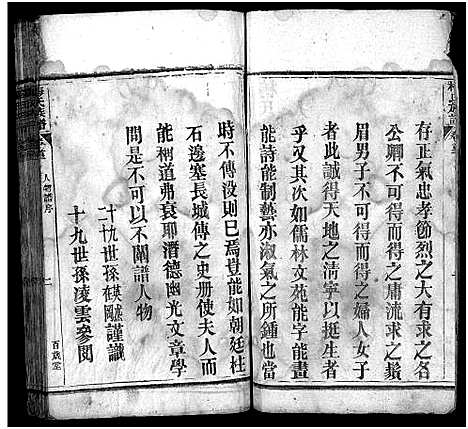 存正氣忠孝節烈之大有求之名
公卿不可得而得之庸流求之鬚
眉男子不可得而得之嬬人女子
者此誠得天地之淸寧以挺生者
乎又其次如儒林文苑能字能畫
能詩能制藝亦淑氣之所鍾也當
時不傳没則已焉豈能如朝廷柱
石邊塞長城傳之史册使夫人而
能稱道弗衰耶潛德幽光文章學
問是不可以不闢譜人物
二十九世孫謹識
十九世孫凌雲參閱
人物譜序
百歲堂